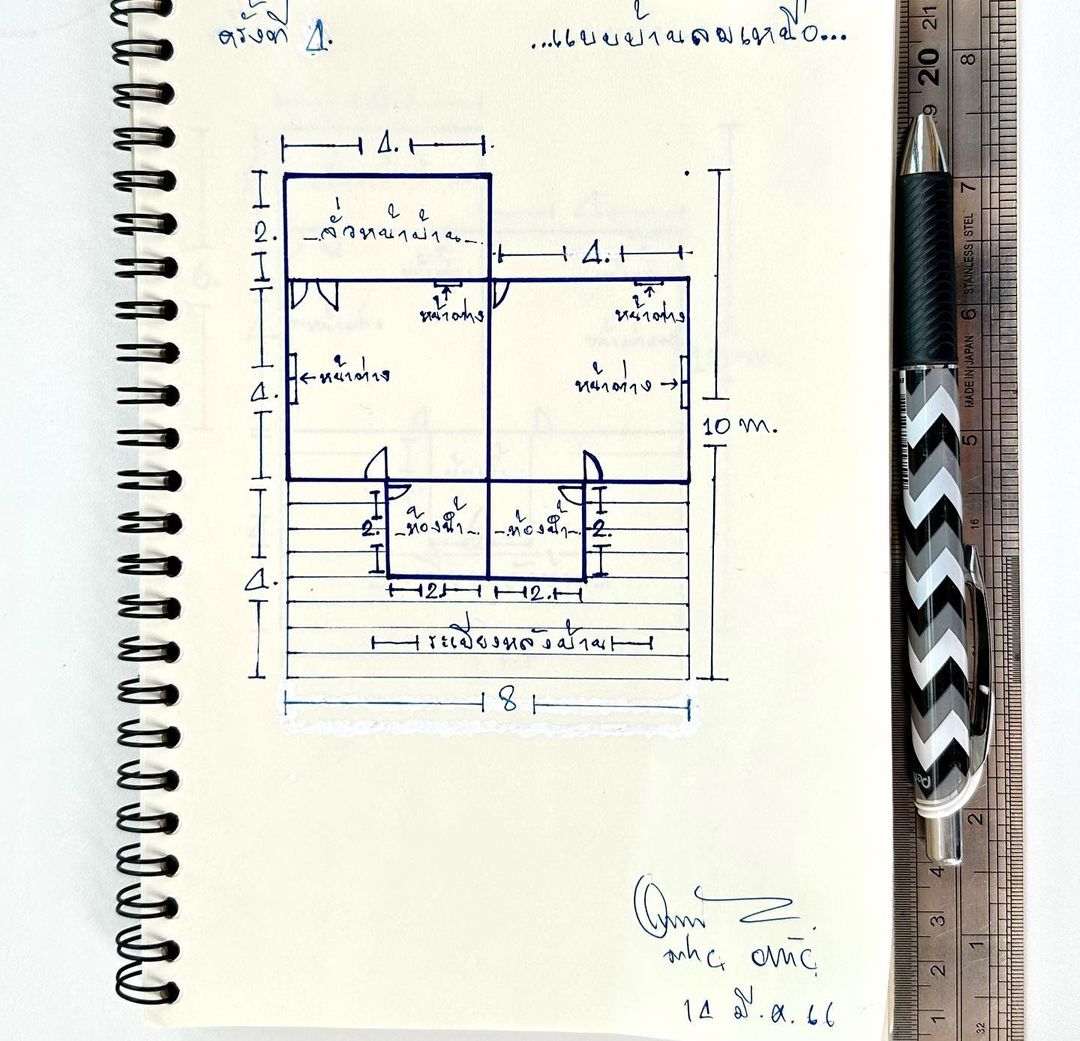 ครั้งที่ 4.
...แบบบ้านลมเหนือ...
4.
2.
-รั้วหน้าบ้าน-
4.
หน้าต่าง
หน้าต่าง
4.
←หน้าต่าง
หน้าต่าง→
10 m.
2.
-ห้องน้ำ-
-ห้องน้ำ-
2.
4.
2.
2.
ระเบียงหลังบ้าน
8
14 มี.ค. 66
21
20
19
8
7
6
5
2
1
4
3
2
1
16
32
STAINLESS STEEL
MADE IN JAPAN